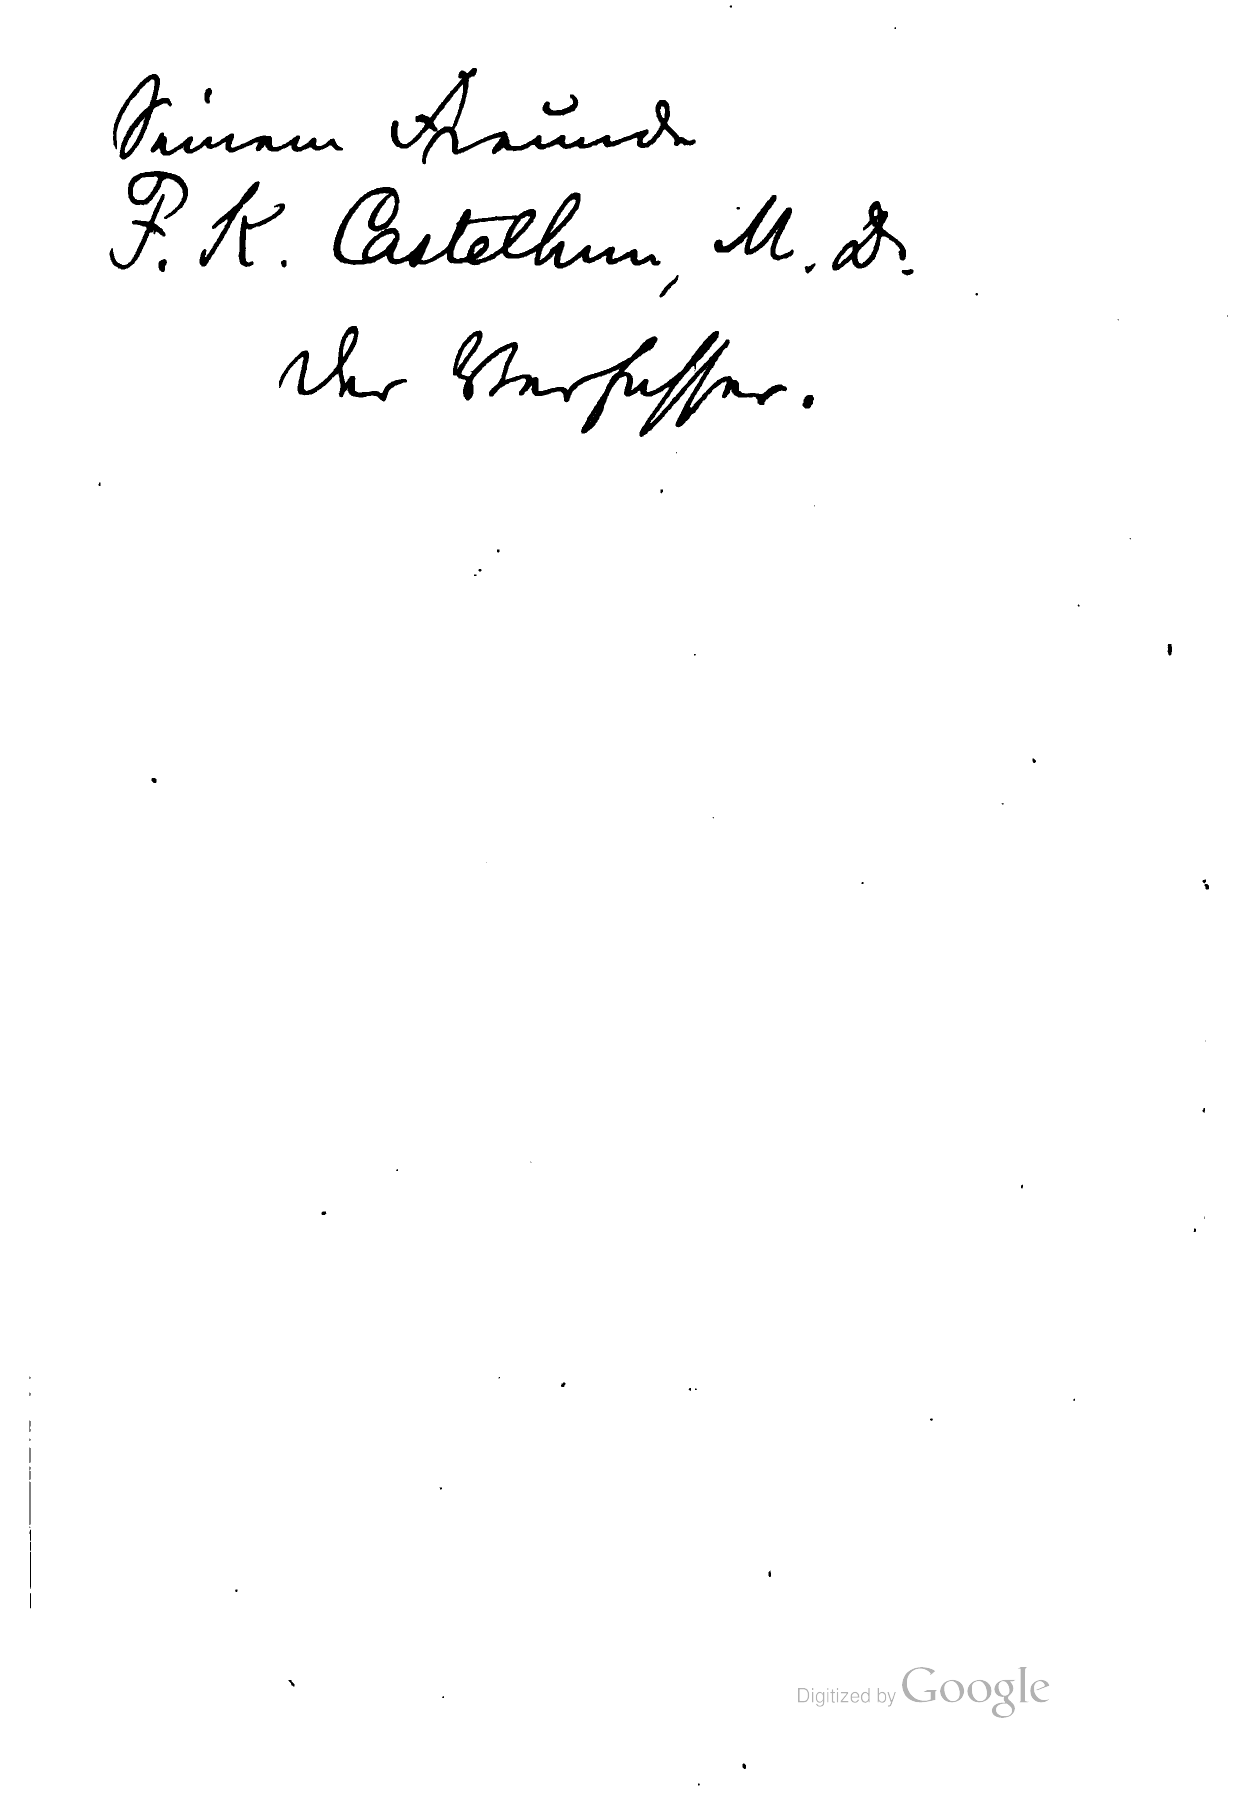 Seinem Freunde
F. K. Castelhun, M. D.
Der Verfasser.
Digitized by Google